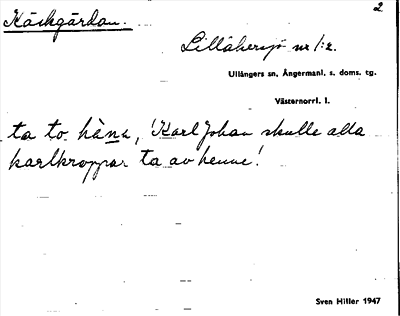 Käckgärdan.
2
Lillåkersjö nr 1:2.
Ullångers sn, Ångermanl. s. doms. tg.
Västernorrl. l.
ta to häna, 'Karl Johan skulle alla
karlkroppar ta av henne!
Sven Hitler 1947